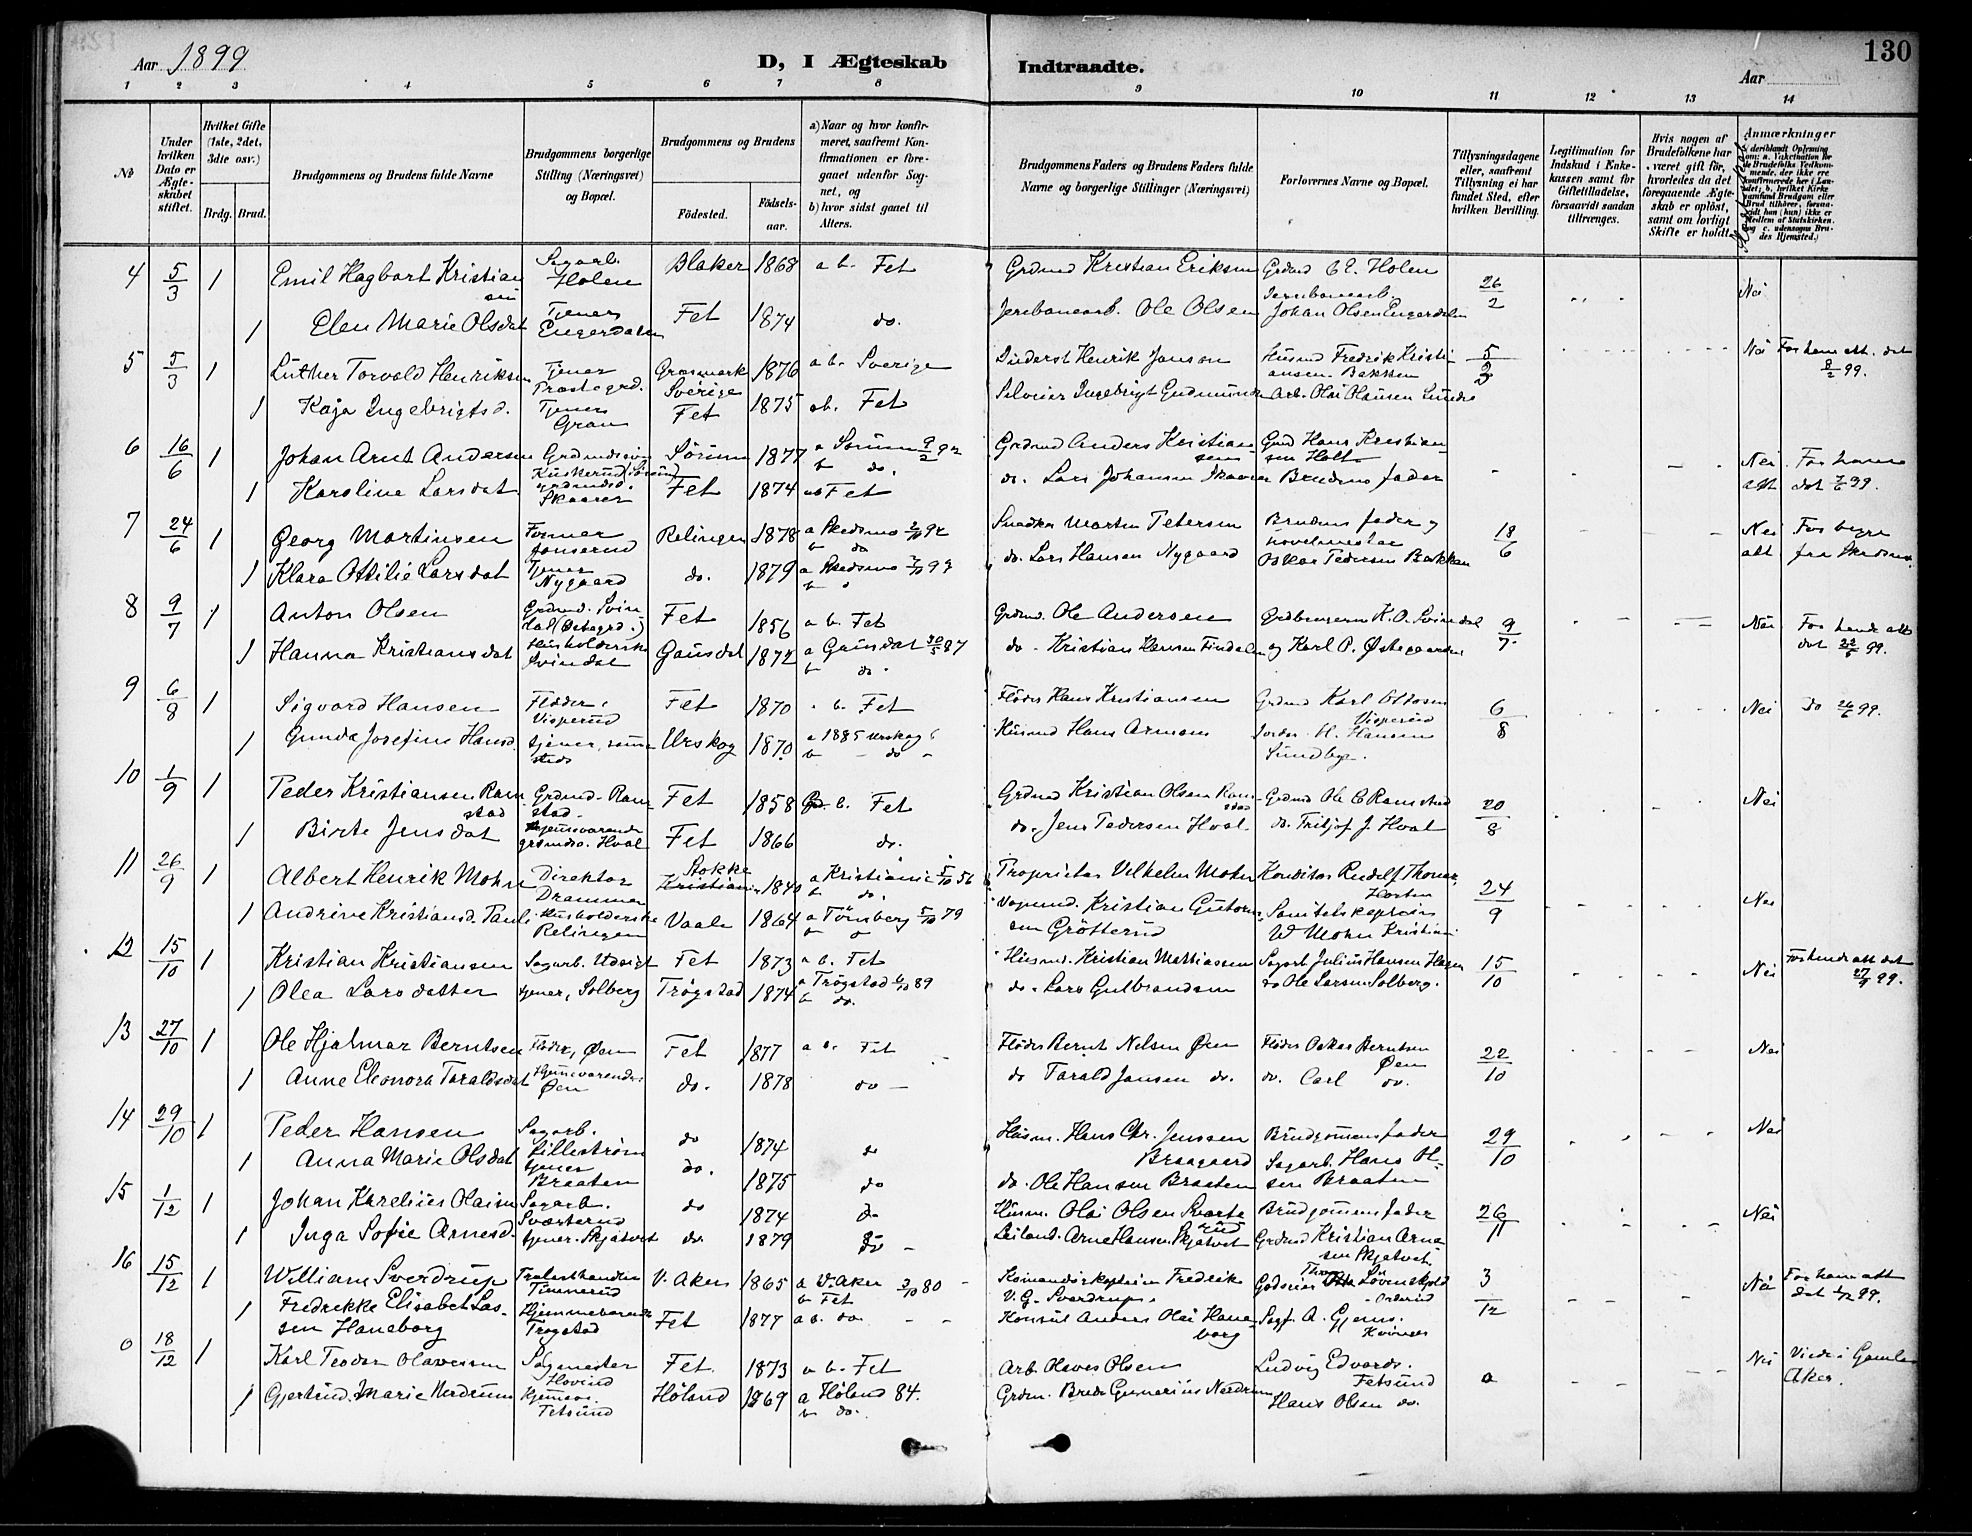 Aar 1899
D, I Ægteskab Indtraadte.
130
Aar
1 2 3 4 5 6 7 8 9 10 11 12 13 14
No
Under hvilken Dato er Ægteskabet stiftet.
Hvilket Gifte (1ste, 2det, 3die osv.)
Brdg. Brud.
Brudgommens og Brudens fulde Navne
Brudgommens borgerlige Stilling (Næringsvei) og Bopæl.
Brudgommens og Brudens
Fødested. Fødselsaar.
a) Naar og hvor konfirmeret, saafremt Konfirmationen er foregaaet udenfor Sognet, og
b) hvor sidst gaaet til Alters.
Brudgommens Faders og Brudens Faders fulde Navne og borgerlige Stillinger (Næringsvei)
Forlovernes Navne og Bopæl.
Tillysningsdagene eller, saafremt Tillysning ei har fundet Sted, efter hvilken Bevilling.
Legitimation for Indskud i Enkekassen samt for Giftetilladelse, forsaavidt saadan tiltrænges.
Hvis nogen af Brudefolkene har været gift før, hvorledes da det foregaaende Ægteskab er opløst, samt om lovligt Skifte er holdt.
Anmærkninger
4 5/3 1 Emil Hagbart Kristiansen Sagarb. Holen Blaker 1868 a b. Fet Grdmd Kristian Eriksen Grdmd C E. Holen 26/2 Nei
1 Elen Marie Olsdat Tjener Engerdalen Fet 1874 do. Jernbanearb. Ole Olsen Jernbanearb. Johan Olsen Engerdalen
5 5/3 1 Luther Torvald Henriksen Tjener Prestegrd. Grasmark Sverige 1876 a b. Sverige Henrik Janson Husmd Fredrik Kristiansen Bakken 5/3 Nei For ham att. dat 8/2 99.
1 Kaja Ingebrigtsd. Tjener Gran Fet 1875 ab. Fet Selveier Ingebrigt Gudmundsen Arb. Olai Olausen Sundre
6 16/6 1 Johan Arnt Andersen Grdmdssøn Kuskerud (Sørum) Sørum 1877 a Sørum 9/2 92 b do. Grdmd Anders Kristiansen Grmd Hans Kristiansen Holt Nei att For ham dat 7/6 99.
1 Karoline Larsdat grdmdsd. Skaarer Fet 1874 ab Fet do. Lars Johansen Skaarer Brudens fader
7 24/6 1 Georg Martinsen Former Jonserud Relingen 1878 a Skedsmo 2/10 92 b do Snedker Martin Petersen Brudens fader og 18/6 Nei att For begge fra Skedsmo.
1 Klara Ottilie Larsdat Tjener Nygaard do. 1879 a Skedsmo b do. Lars Hansen Nygaard Oskar Pedersen Bakken
8 9/7 1 Anton Olsen Grdmd. Svindal (Østegrd.) Fet 1856 a b. Fet Grdmd. Ole Andersen Grdbrugerne K. O. Svindal 9/7 Nei For hende att dat 22/6 99.
1 Hanna Kristiansdat Husholderske Svindal Gausdal 1872 a Gausdal 30/5 87 b do. do. Kristian Hansen og Karl P. Østegaarden
9 6/8 1 Sigvard Hansen Fløder, Visperud Fet 1870 a b. Fet Fløder Hans Kristiansen Grdmd Karl Ottosen Visperud 6/8 Nei Do 26/6 99.
1 Gunda Josefine Hansd. tjener, sammesteds Urskog 1870. a 1885 Urskog b do Husmd Hans Arnesen H. Hansen Sundby.
10 1/9 1 Peder Kristiansen Ramstad Grdmd. Ramstad. Fet 1858 b. Fet Grdmd Kristian Olsen Ramstad Grdmd Ole C Ramstad 20/8 Nei
1 Birte Jensdat Hjemmeværende grdmdsd. Hval Fet 1866 do. do. Jens Pedersen Hval. do. Fritjof J. Hval
11 26/9 1 Albert Henrik Mohn Direktør Drammen Stokke 1840 a Kristiania 5/10 56 b do. Proprietær Vilhelm Mohn Konditor Rudolf Thomas Horten 24/9 Nei
1 Andrine Kristiansd. Pauli Husholderske Relingen Vaale 1864 a Tønsberg 5/10 79 Kristian Gutormsen Grøtterud Sanitetskaptein W Mohn Kristiania
12 15/10 1 Kristian Kristiansen Sagarb. Udsigt Fet 1873 a b. Fet Husmd. Kristian Mathiassen Sagarb Julius Hansen Hagen 15/10 Nei For hende att dat 27/9 99.
1 Olea Larsdatter tjener, Solberg Trøgstad 1874 a Trøgstad 6/10 89 b do. do. Lars Gulbrandsen do Ole Larsen Solberg.
13 27/10 1 Ole Hjalmar Berntsen Fløder, Øen Fet 1877 a b. Fet Fløder Bernt Nelsen Øen Fløder Oskar Berntsen Øen 22/10 Nei
1 Anne Eleonora Taraldsdat Hjemmeværende Øen do. 1878 do do Tarald Jansen do. do. Carl do.
14 29/10 1 Peder Hansen Sagarb. Lillestrøm do 1874 do Husm. Hans Chr. Jenssen Braagaard Brudgommens fader 29/10 Nei
1 Anna Marie Olsdat tjener Braaten do. 1875 do do. Ole Hansen Braaten Sagarb. Hans Olsen Braaten
15 1/12 1 Johan Karelius Olaisen Sagarb. Sværterud do 1874 do Husm. Olai Olsen Sværterud Brudgommens fader 26/11 Nei
1 Inga Sofie Arnesd. tjener. Skjatvet do. 1879 do Leiland. Arne Hansen Skjatvet Grdmd Kristian Arnesen Skjatvet
16 15/12 1 William Sverdrup Trælasthandler Tinnerud V. Aker 1865 a V. Aker 3/10 80 b Fet Komandørkaptein Fredrik V. G. Sverdrup. Godseier Løvenskjold 3/12 Nei For ham att dat 99.
1 Fredrikke Elisabet Lassen Haneborg Hjemmeværende Trøgstad Fet 1877 a b. do. Konsul Anders Olai Haneborg Sagf. A. Gjems. Kvisnes
0 18/12 1 Karl Teodor Olavesen Sagmester Hovind Fet 1873 a b. Fet Arb. Olaves Olsen Ludvig Edvards. Fetsund 0 Nei Viede i Gamle Aker.
1 Gjertrud Marie Nerdrum hjemmev. Fetsund Høland 1869 a Høland 84. b do. Grdm. Brede Gunerius Nerdrum Hans Olsen do.